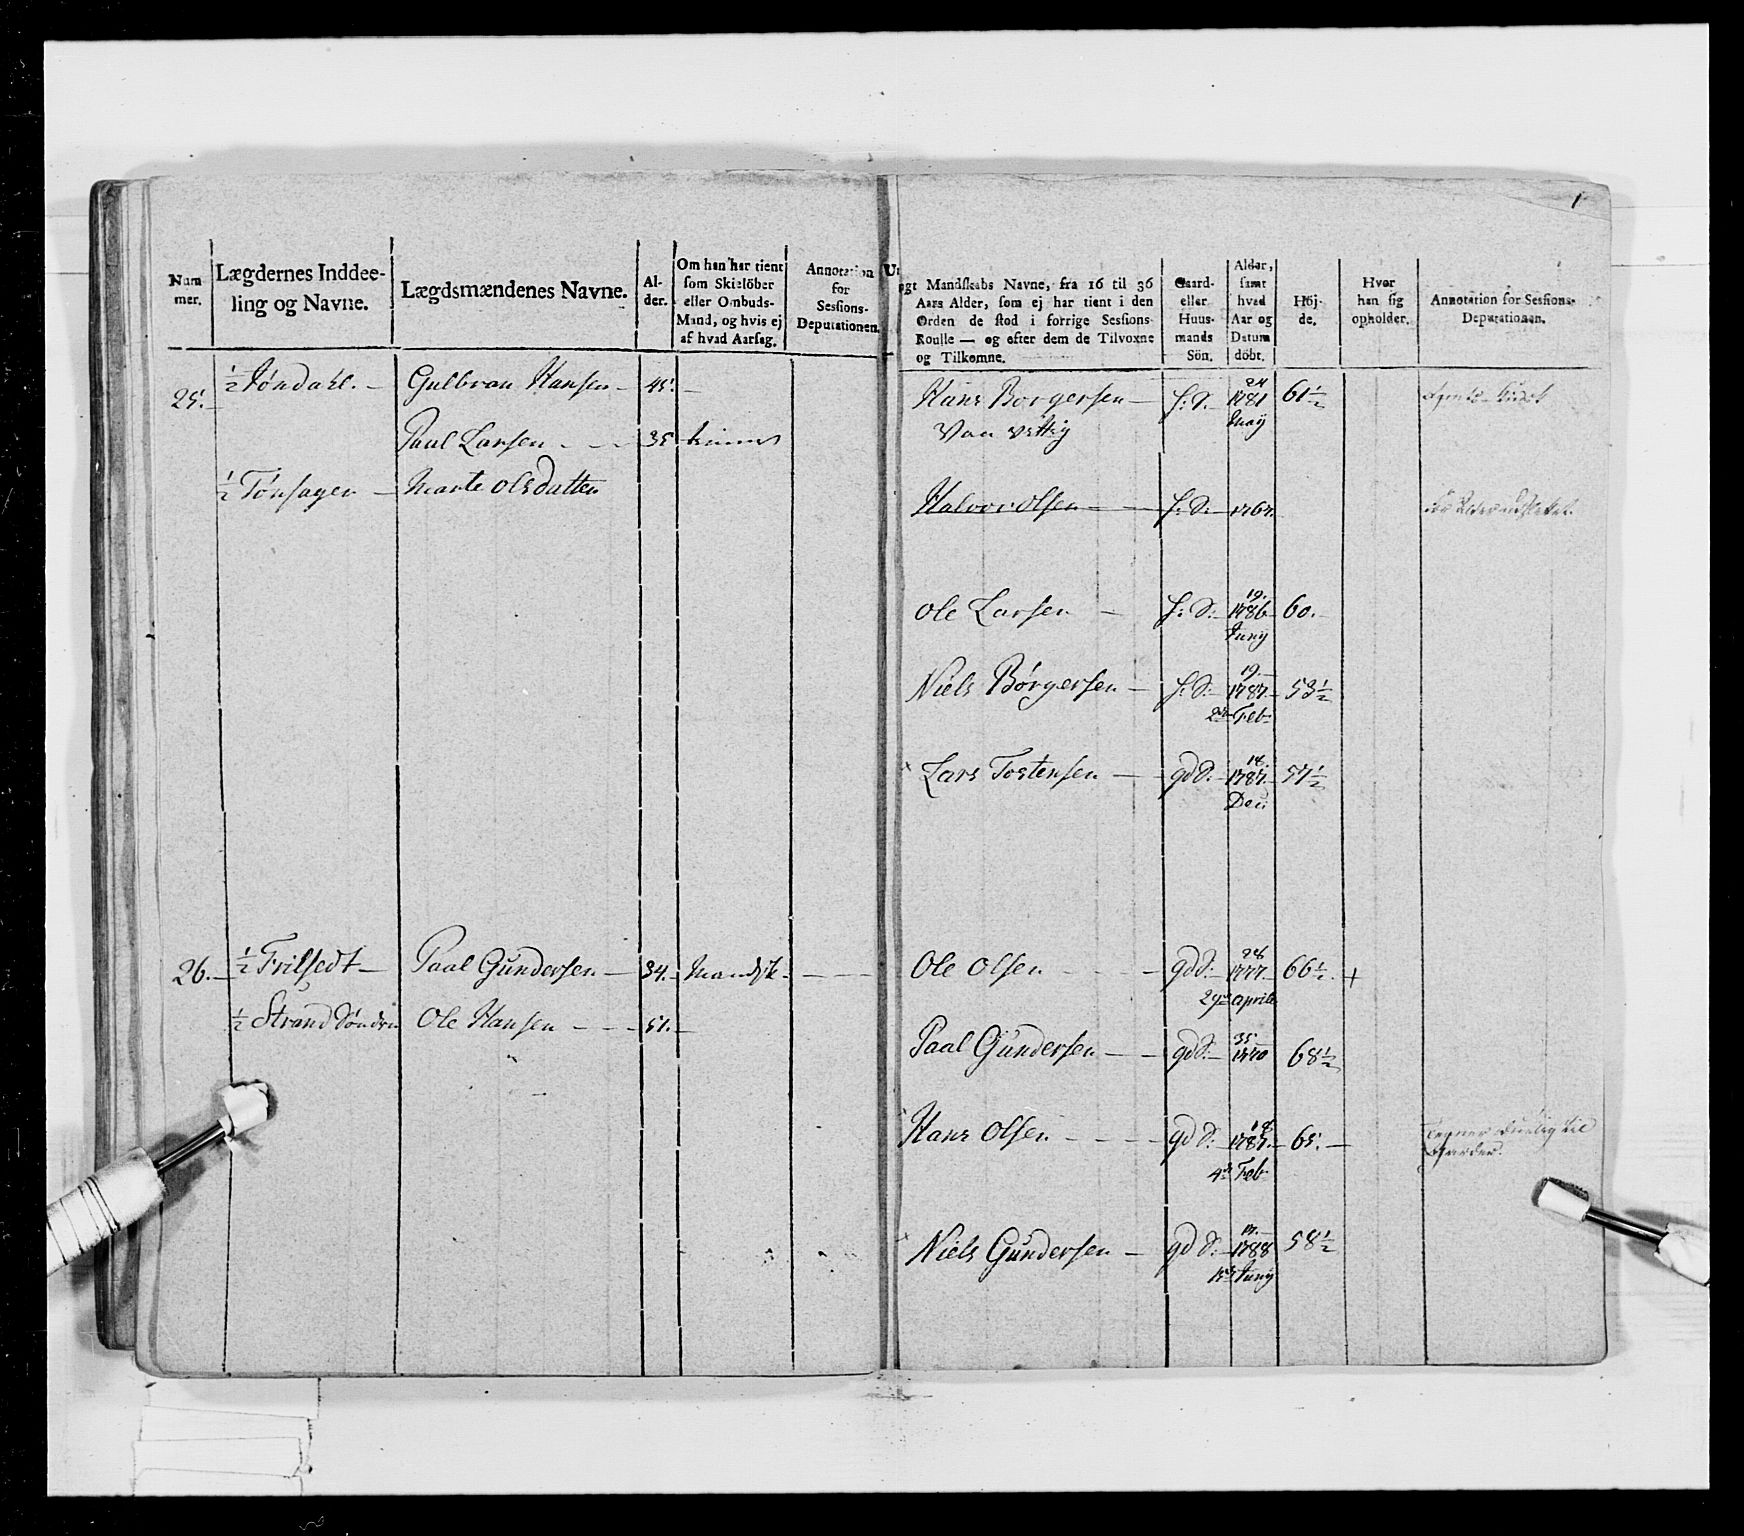 1
Num
mer.
Lægdernes Inddee-
ling og Navne.
Lægdsmændenes Navne.
Al-
der.
Om han har tient
som Skielöber
eller Ombuds-
Mand, og hvis ej
af hvad Aarsag.
Annotation
for
Sessions-
Deputationen.
Ungt Mandskabs Navne, fra 16 til 36
Aars Alder, som ej har tient i den
Orden de stod i forrige Sessions-
Roulle — og efter dem de Tilvoxne
og Tilkomne.
Gaard-
eller
Huus-
mands
Sön.
Alder,
samt
hvad
Aar og
Datum
döbt.
Höj-
de.
Hvor
han sig
opholder.
Annotation for Sessions-
Deputationen.
25. ½ Jöndahl. — Gulbran Hansen — 45. —
Paal Larsen — — 35
½ Tönsagen — Marte Olsdatter
Hans Borgersen — h: S. — 24 1781 Maÿ 61½
Van
Halvor Olsen — h: S. — 1767.
Ole Larsen — h: S. — 19. 1786 Junÿ 60. —
Niels Börgersen — h: S. — 19. 1787. 2de Feb: 53½
Lars Tostensen — gd S. — 18. 1787. Dec 57½
26. — ½ Frilsedt — Paal Gundersen — 34. —
½ Strand Söndre Ole Hansen — — 51. —
Ole Olsen — — gd S: — 28 1777 29de aprile 66½. +
Paal Gundersen — — gd S: — 35 1770 68½
Hans Olsen — — — gd S: — 18 1787. 4de Feb: 65. —
Niels Gundersen — gd S. — 17. 1788 Junÿ 58½